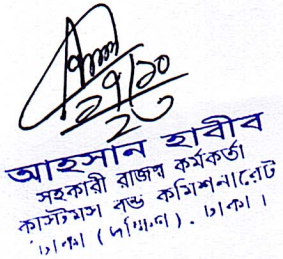 ২৭/১০
২৩
আহসান হাবীব
সহকারী রাজস্ব কর্মকর্তা
কাস্টমস বন্ড কমিশনারেট
ঢাকা (দক্ষিণ). ঢাকা।